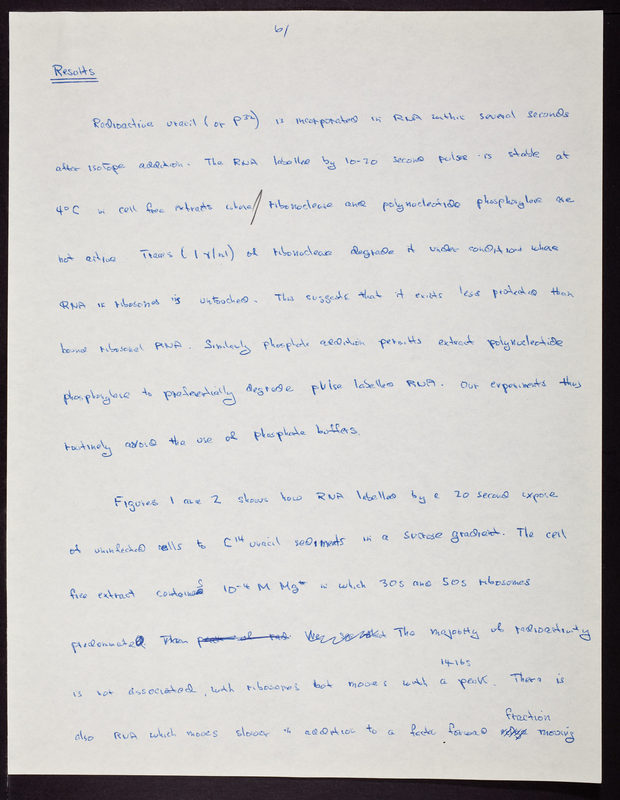 6/
Results
Radioactive uracil (or P32) is incorporated in RNA within several seconds
after isotope addition. The RNA labelled by 10-20 second pulse is stable at
4°C in cell free extracts where ribonuclease and polynucleotide phosphorylase are
not active Traces (1 γ/ml) of ribonuclease degrade it under conditions where
RNA in ribosomes is untouched. This suggests that it exists less protected than
bound ribosomal RNA. Similarly phosphate addition permits extract polynucleotide
phosphorylase to preferentially degrade pulse labelled RNA. Our experiments thus
routinely avoid the use of phosphate buffers.
Figures 1 and 2 shows how RNA labelled by a 20 second expose
of uninfected cells to C14 uracil sediments in a sucrose gradient. The cell
free extract contains 10-4 M Mg+ in which 30s and 50s ribosomes
predominate. The majority of radioactivity
14-16s
is not associated with ribosomes but moves with a peak. There is
fraction
also RNA which moves slower in addition to a faster moving